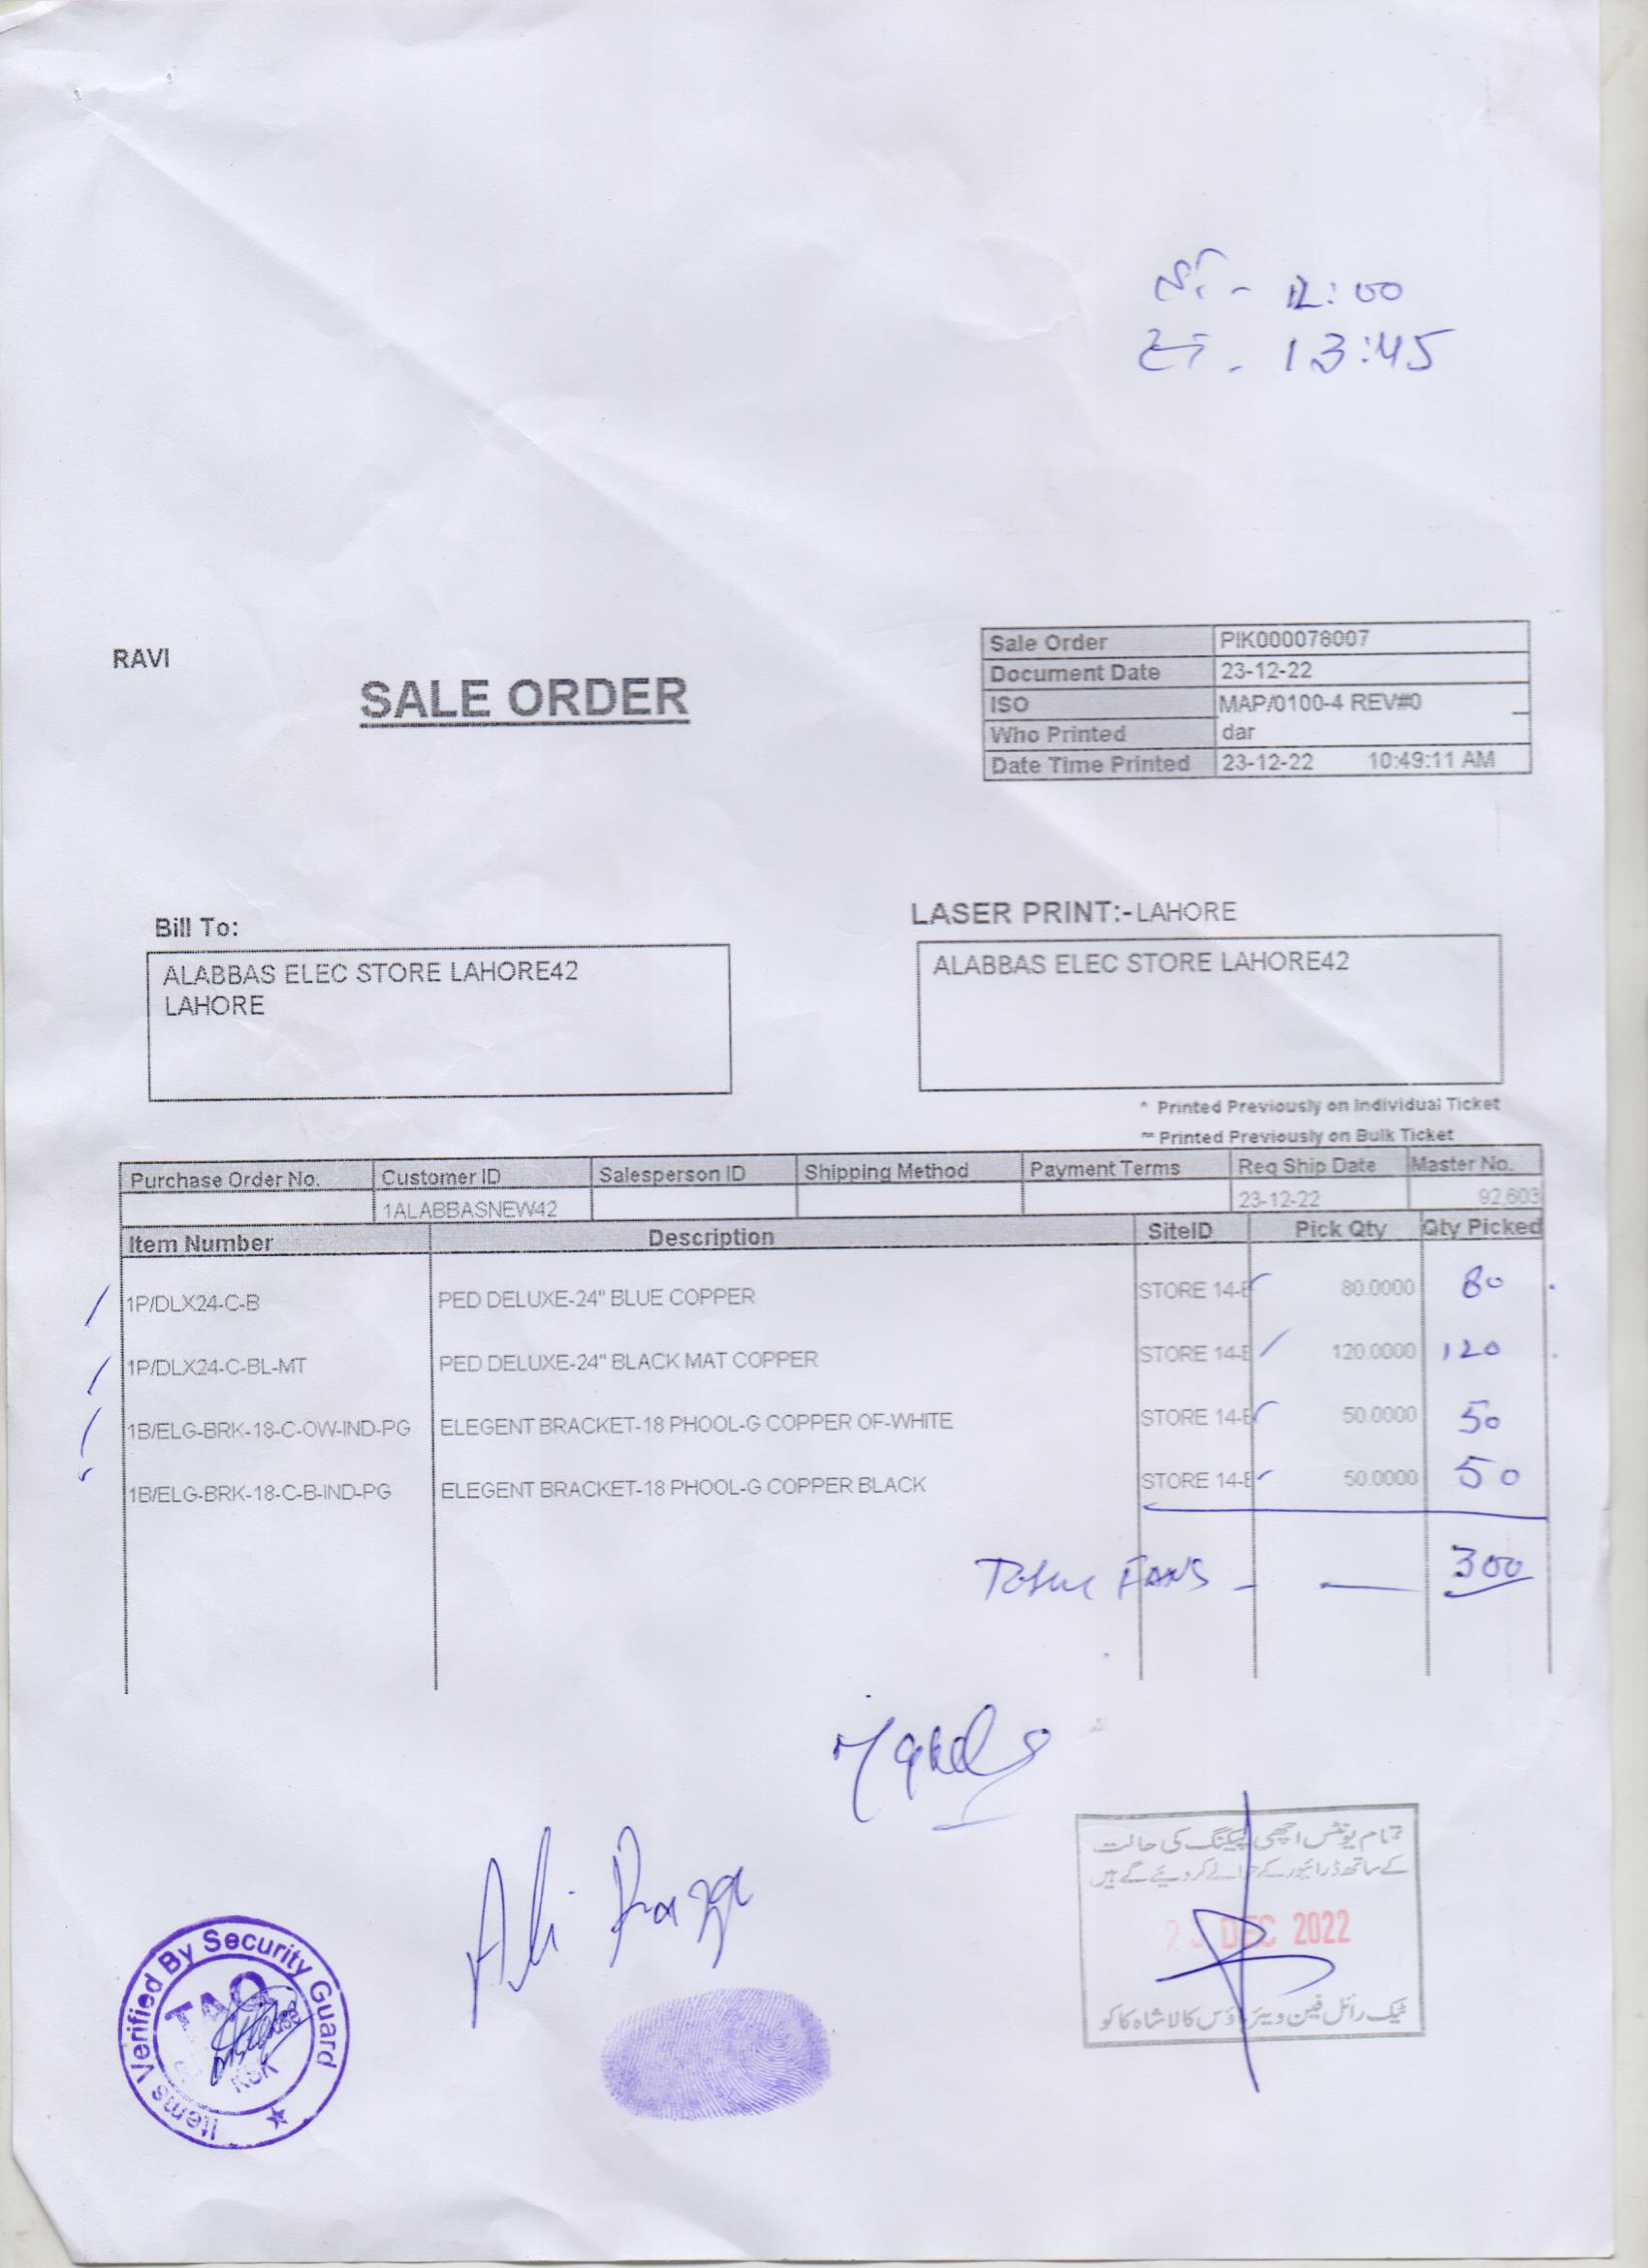 12:00
13:45
RAVI
SALE ORDER
Sale Order PIK000078007
Document Date 23-12-22
ISO MAP/0100-4 REV#0
Who Printed dar
Date Time Printed 23-12-22 10:49:11 AM
Bill To:
LASER PRINT:-LAHORE
ALABBAS ELEC STORE LAHORE42
LAHORE
ALABBAS ELEC STORE LAHORE42
^ Printed Previously on Individual Ticket
~ Printed Previously on Bulk Ticket
Purchase Order No. Customer ID Salesperson ID Shipping Method Payment Terms Req Ship Date Master No.
1ALABBASNEW42 23-12-22 92,603
Item Number Description SiteID Pick Qty Qty Picked
1P/DLX24-C-B PED DELUXE-24" BLUE COPPER STORE 14-E 80.0000 80
1P/DLX24-C-BL-MT PED DELUXE-24" BLACK MAT COPPER STORE 14-E 120.0000 120
1B/ELG-BRK-18-C-OW-IND-PG ELEGENT BRACKET-18 PHOOL-G COPPER OF-WHITE STORE 14-E 50.0000 50
1B/ELG-BRK-18-C-B-IND-PG ELEGENT BRACKET-18 PHOOL-G COPPER BLACK STORE 14-E 50.0000 50
Total FANS - — 300
Ali Razza
تمام یونٹس اچھی پیکنگ کی حالت
کے ساتھ ڈرائیور کے حوالے کر دیئے گئے ہیں
DEC 2022
ٹیک رائل فین ویئر ہاؤس کالا شاہ کاکو
Items Verified By Security Guard
KSK